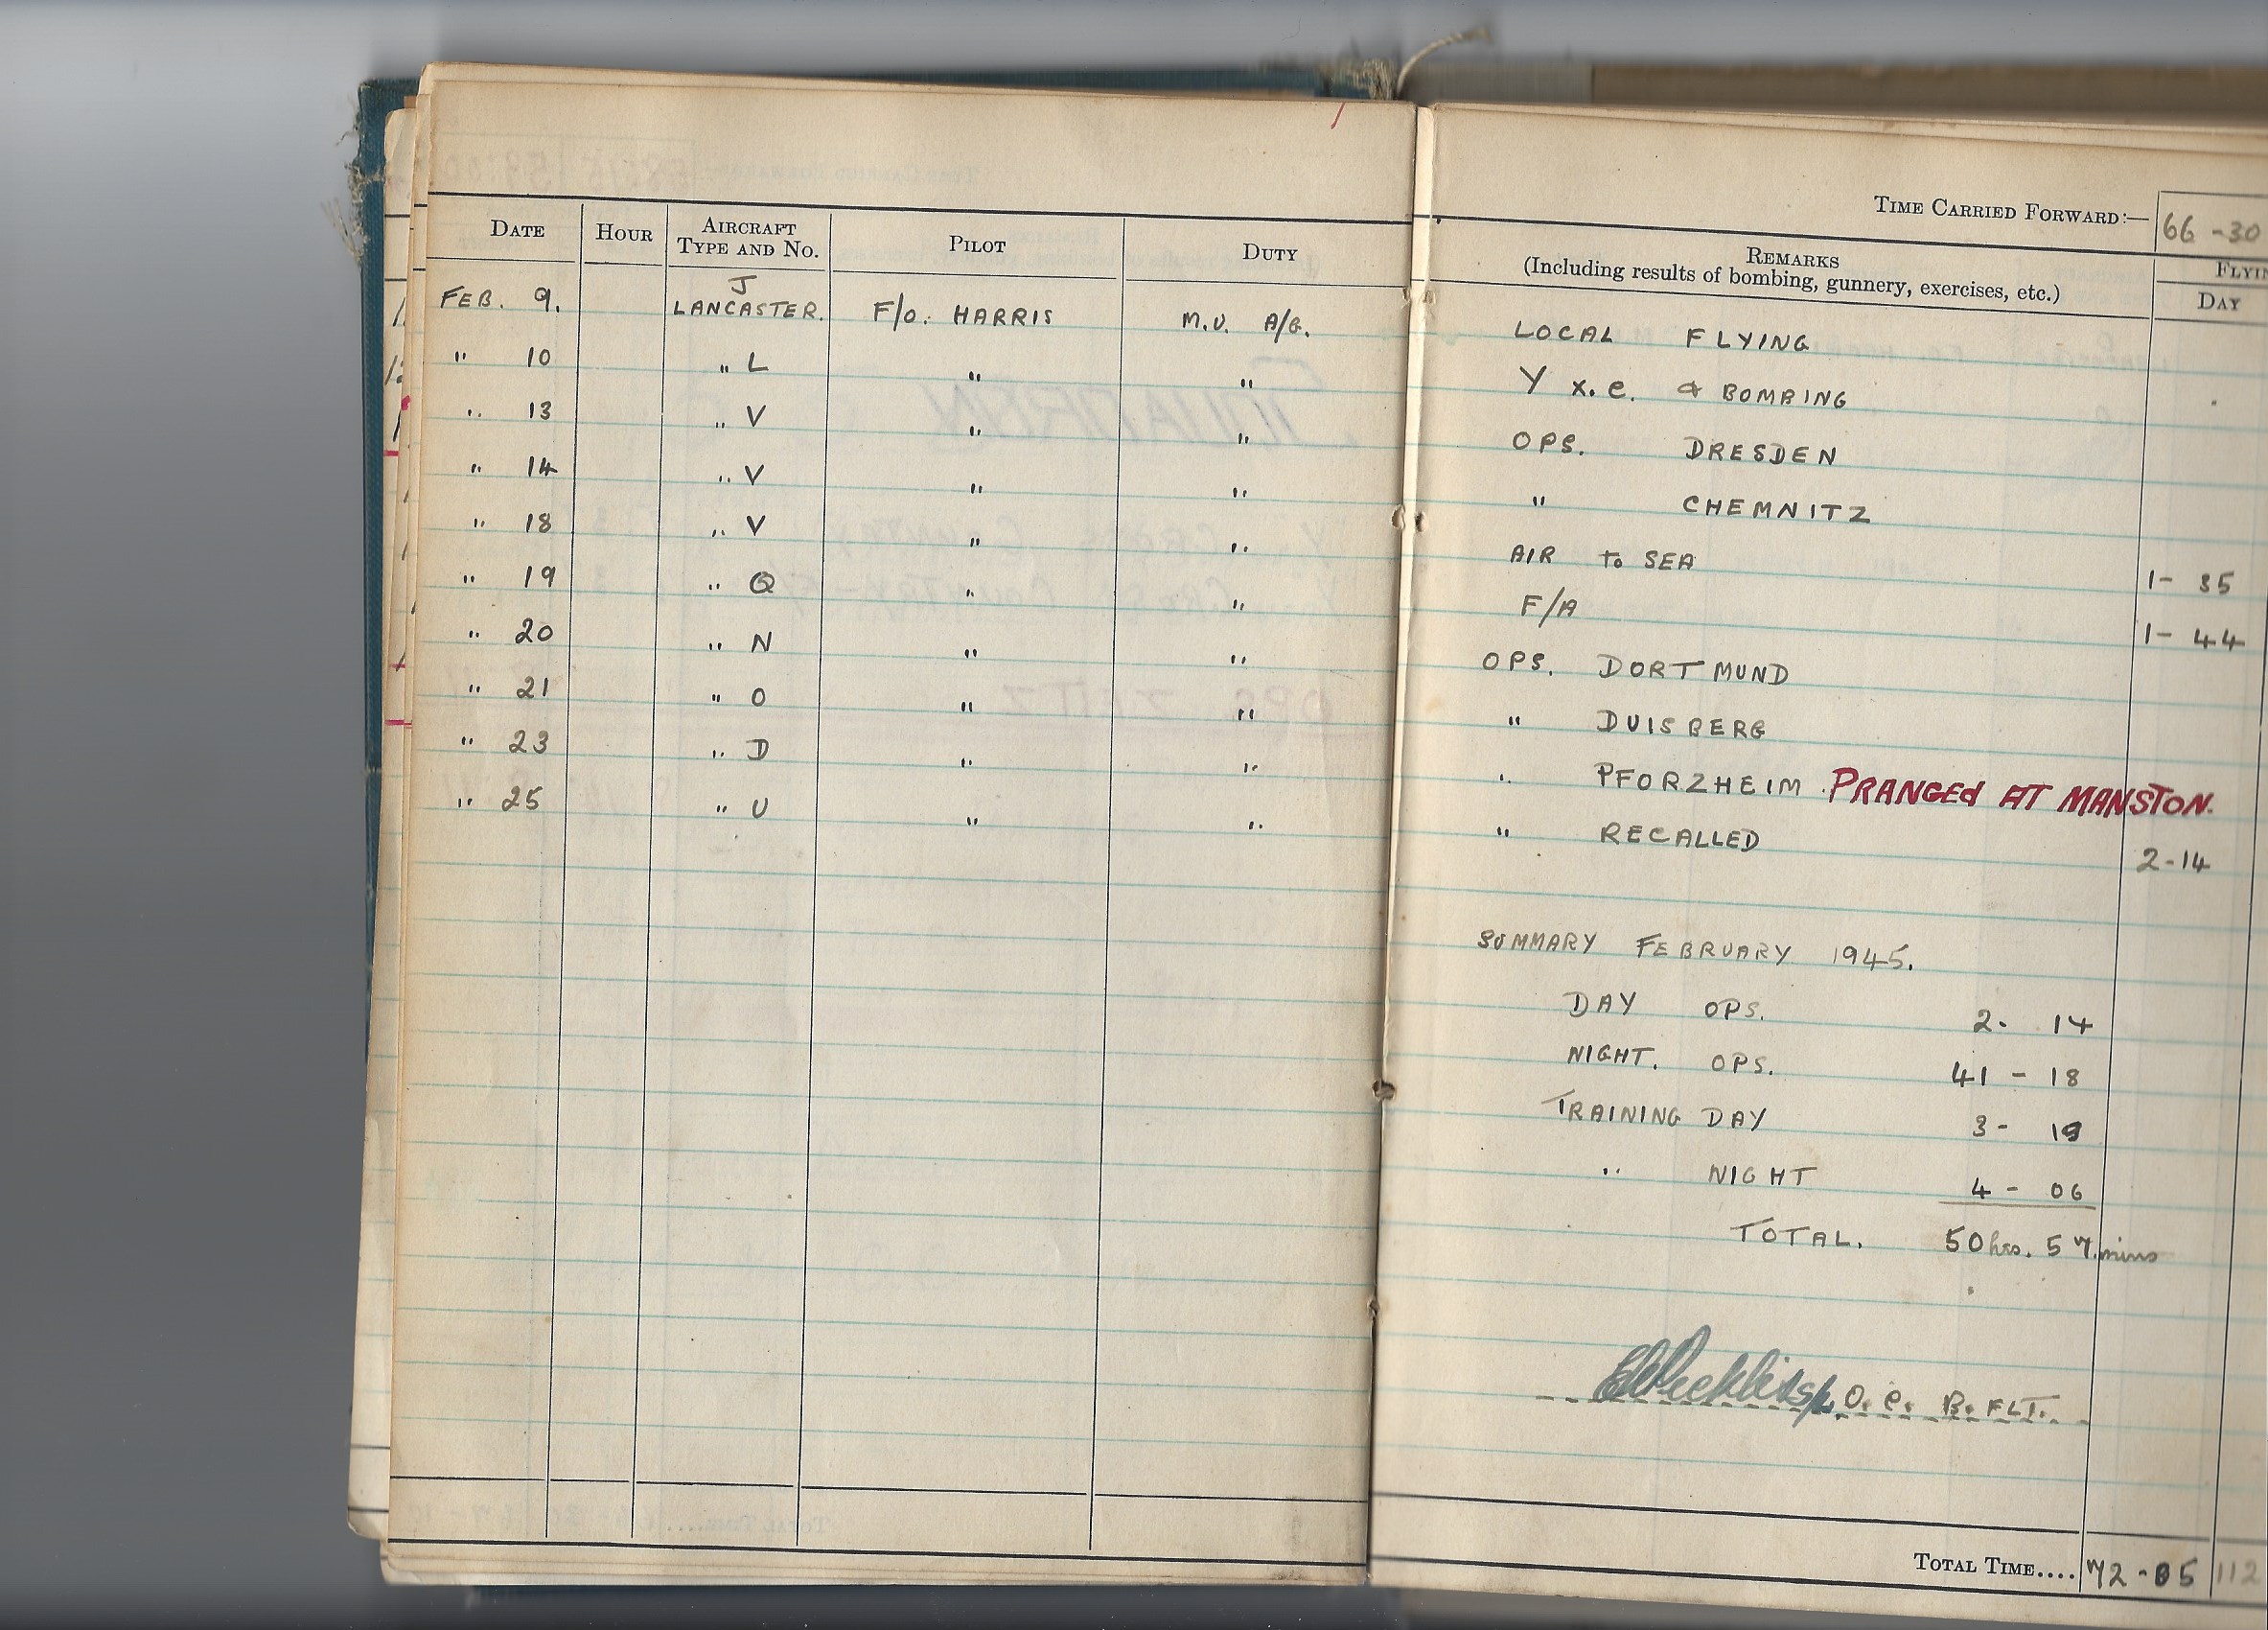 TIME CARRIED FORWARD:— 66-30
DATE HOUR AIRCRAFT TYPE AND No. PILOT DUTY REMARKS (Including results of bombing, gunnery, exercises, etc.) FLYIN DAY
FEB. 9. J LANCASTER. F/O. HARRIS M.U. A/G. LOCAL FLYING
" 10 " L " " Y x.c. & BOMBING
" 13 " V " " OPS. DRESDEN
" 14 " V " " " CHEMNITZ
" 18 " V " " AIR to SEA 1- 35
" 19 " Q " " F/A 1- 44
" 20 " N " " OPS. DORTMUND
" 21 " O " " " DUISBERG
" 23 " D " " " PFORZHEIM. PRANGEd AT MANSTON.
" 25 " U " " " RECALLED 2-14
SUMMARY FEBRUARY 1945.
DAY OPS. 2- 14
NIGHT. OPS. 41 - 18
TRAINING DAY 3- 19
" NIGHT 4 - 06
TOTAL. 50 hrs. 57. mins
S/L. O.C. B. FLT.
TOTAL TIME.... 72-05 112